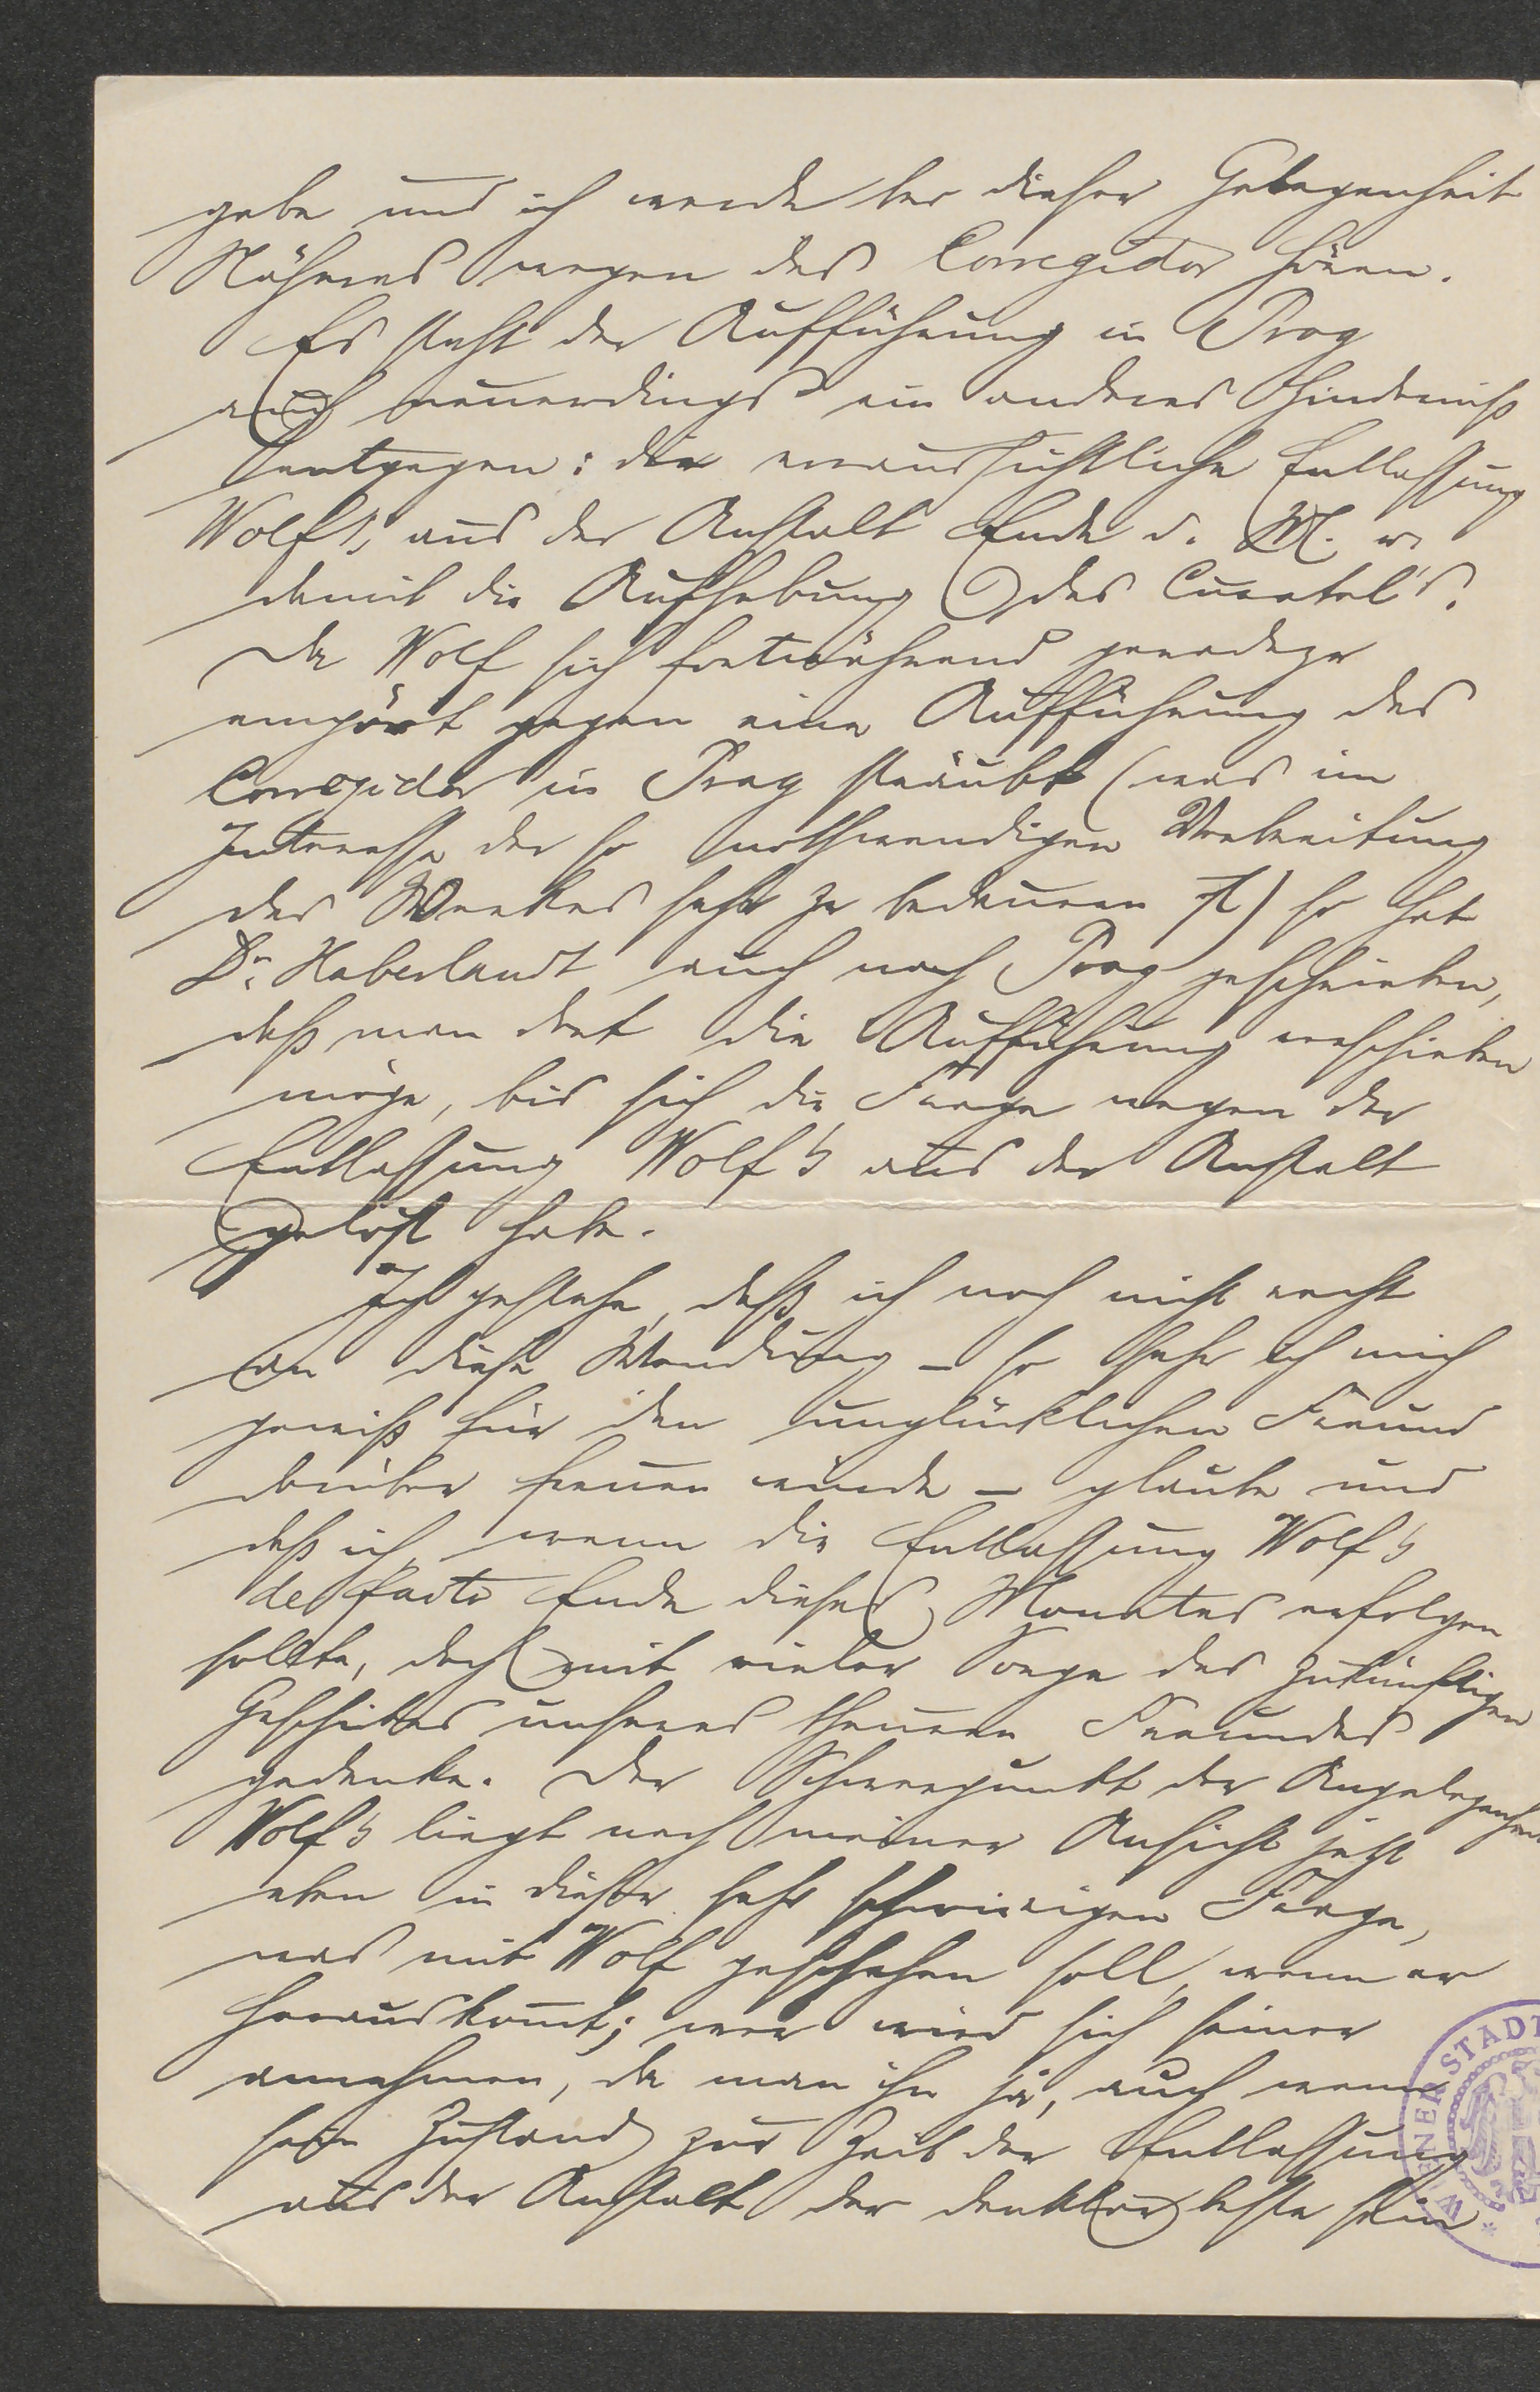 gebe und ich werde bei dieser Gelegenheit
Näheres wegen des Corregidor hören.
Es steht der Aufführung in Prag
auch neuerdings ein anderes Hinderniß
entgegen: die voraussichtliche Entlassung
Wolf's, aus der Anstalt Ende d. M. u.
damit die Aufhebung des Curatel's.
Da Wolf sich fortwährend geradezu
empört gegen eine Aufführung des
Corregidor in Prag sträubt (was im
Interesse der so nothwendigen Verbreitung
des Werkes sehr zu bedauern ist) so hat
Dr. Haberlandt auch nach Prag geschrieben,
daß man dort die Aufführung verschieben
möge, bis sich die Frage wegen der
Entlassung Wolf's aus der Anstalt
gelöst habe.
Ich gestehe, daß ich noch nicht recht
an diese Wendung – so sehr ich mich
gewiß für den unglücklichen Freund
darüber freuen würde – glaube und
daß ich, wenn die Entlassung Wolf's
de facto Ende dieses Monates erfolgen
sollte, doch mit vieler Sorge des zukünftigen
Geschickes unseres theuren Freundes
gedenke. Der Schwerpunkt der Angelegenheit
Wolf's liegt nach meiner Ansicht jetzt
eben in dieser sehr schwierigen Frage,
was mit Wolf geschehen soll, wenn er
herauskomt; wer wird sich seiner
annehmen, da man ihn ja, auch wenn
sein Zustand zur Zeit der Entlassung
aus der Anstalt der denkbar beste sein
WIENER STADT